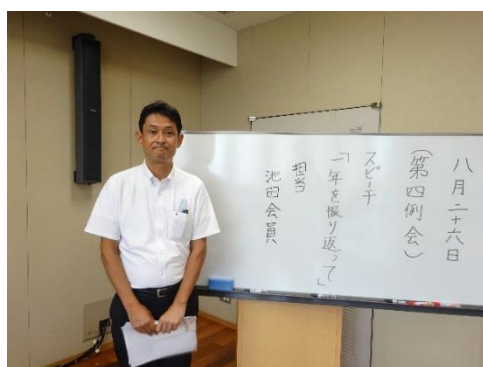 八月二十六日
(第四例会)
スピーチ
「一年を振り返って」
担当
池田会員